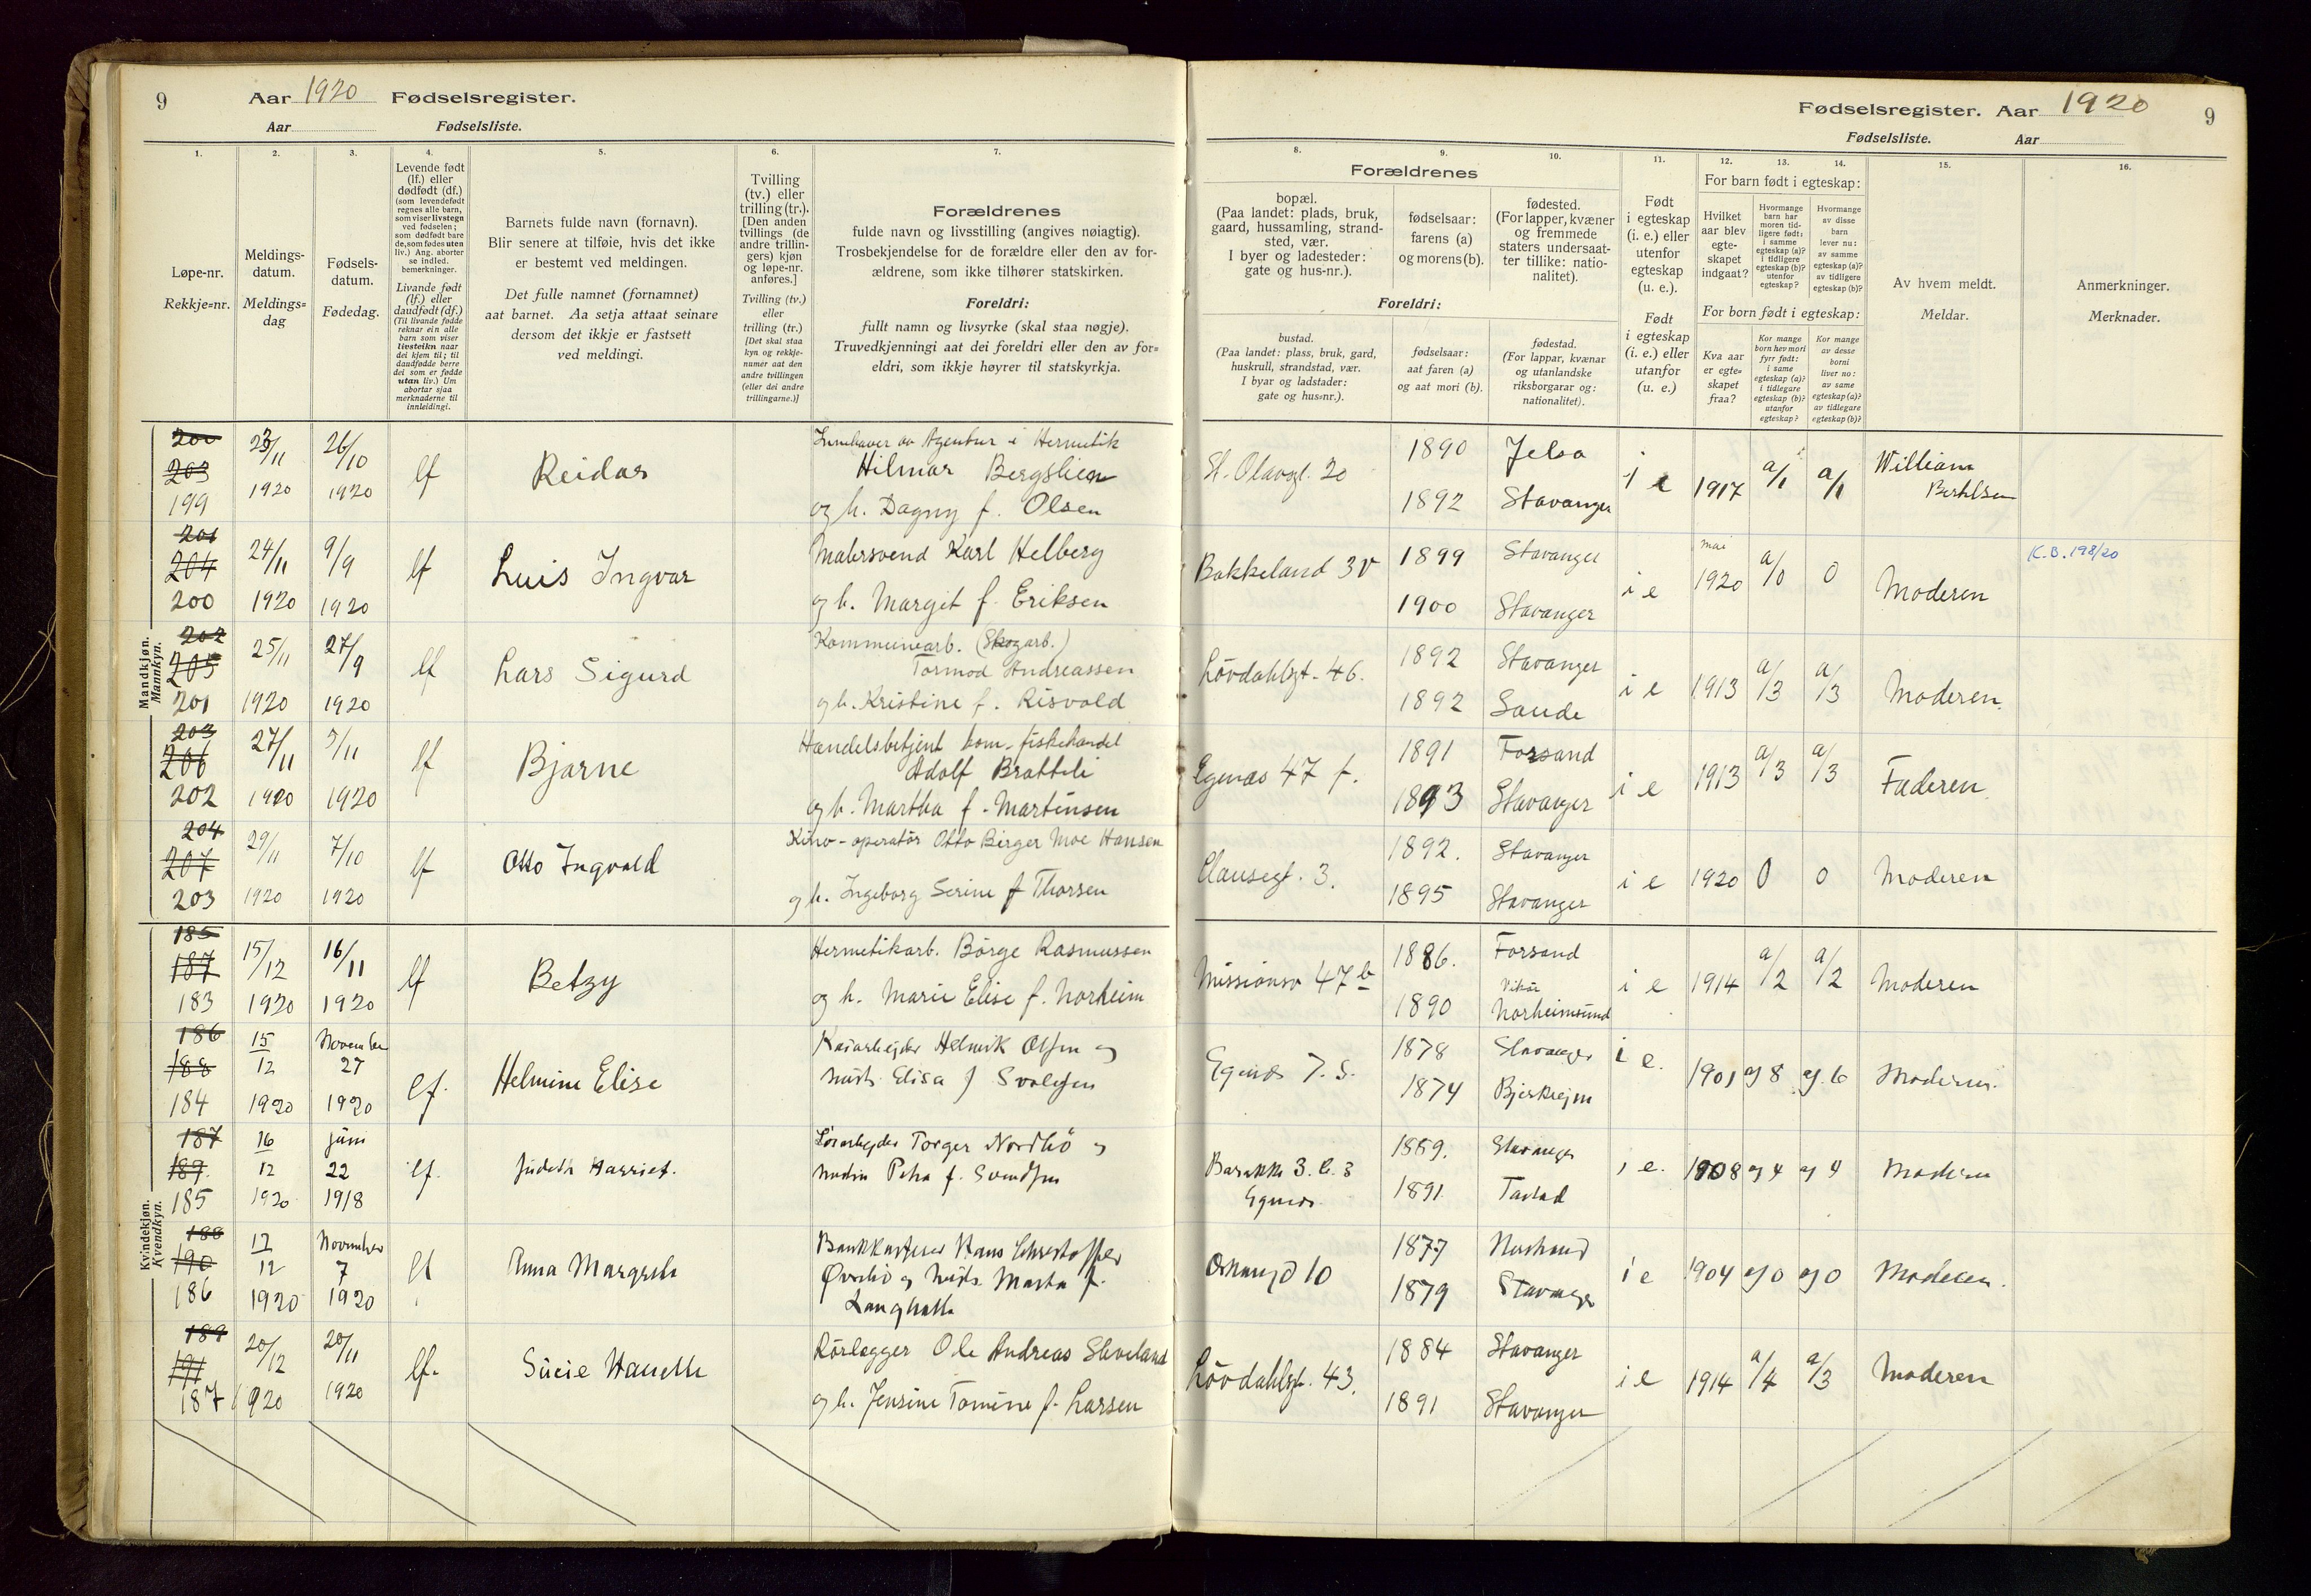 9
Aar 1920 Fødselsregister.
Aar Fødselsliste.
1.
2.
3.
4.
5.
6.
7.
Løpe-nr.
Rekkje=nr.
Meldings-
datum.
Meldings=
dag
Fødsels-
datum.
Fødedag.
Levende født
(lf.) eller
dødfødt (df.)
(som levendefødt
regnes alle barn,
som viser livstegn
ved fødselen;
som dødfødt bare
de, som fødes uten
liv.) Ang. aborter
se indled.
bemerkninger.
Livande født
(lf.) eller
daudfødt (df.)
(Til livande fødde
reknar ein alle
barn som viser
livsteikn naar
dei kjem til; til
daudfødde berre
dei som er fødde
utan liv.) Um
abortar sjaa
merknaderne til
innleiding.
Barnets fulde navn (fornavn).
Blir senere at tilføie, hvis det ikke
er bestemt ved meldingen.
Det fulle namnet (fornamnet)
aat barnet. Aa setja attaat seinare
dersom det ikkje er fastsett
ved meldingi.
Tvilling
(tv.) eller
trilling (tr.).
[Den anden
tvillings (de
andre trillin-
gers) kjøn
og løpe-nr.
anføres.]
Tvilling (tv.)
eller
trilling (tr.)
[Det skal staa
kyn og rekkje-
numer aat den
andre tvillingen
(eller dei andre
trillingarne.)]
Forældrenes
fulde navn og livsstilling (angives nøiagtig).
Trosbekjendelse for de forældre eller den av for-
ældrene, som ikke tilhører statskirken.
Foreldri:
fullt namn og livsyrke (skal staa nøgje).
Truvedkjenningi aat dei foreldri eller den av for=
eldri, som ikkje høyrer til statskyrkja.
Mandkjøn.
Mannkyn.
203
199
23/11
1920
26/10
1920
lf
Reidar
Innehaver av Agentur i Hermetik
Hilmar Bergslien
og h. Dagny f. Olsen
201
204
200
24/11
1920
9/9
1920
lf
Luis Ingvar
Malersvend Karl Helberg
og h. Margit f. Eriksen
202
205
201
25/11
1920
27/9
1920
lf
Lars Sigurd
Kommunearb. (Skogarb.)
Tormod Andreassen
og h. Kristine f. Risvold
203
206
202
27/11
1920
1920
lf
Bjarne
Handelsbetjent kom. fiskehandel
Adolf Bratteli
og h. Martha f. Martinsen
204
207
203
29/11
1920
7/10
1920
lf
Otto Ingvald
Kino-operatör Otto Birger Moe Hansen
og h. Ingeborg Serine f Thorsen
Kvindekjøn.
Kvendkyn.
185
187
183
15/12
1920
16/11
1920
lf
Betzy
Hermetikarb. Börge Rasmussen
og h. Marie Elise f. Norheim
186
188
184
15
12
1920
November
27
1920
lf.
Helmine Elise
Kaiarbejder Helmik Olsen og
hustr. Elisa f Svalesen
187
189.
185
16
12
1920
juni
22
1918
lf.
Judith Harriet.
Torger Nordbö og
hustru Petra f. Svendsen
188
190
186
17
12
1920
November
7
1920
lf
Anna Margrete
Bankkasserer Hans Christoffer
og hustr. Marta f.
189
191
187
20/12
1920
20/11
1920
lf.
Sücie Hanette
Rörlegger Ole Andreas Slaveland
og h. Jensine Tomine f. Larsen
Fødselsregister. Aar 1920
9
Fødselsliste. Aar
8.
9.
10.
11.
12.
13.
14.
15.
16.
Forældrenes
bopæl.
(Paa landet: plads, bruk,
gaard, hussamling, strand-
sted, vær.
I byer og ladesteder:
gate og hus-nr.).
fødselsaar:
farens (a)
og morens (b).
fødested.
(For lapper, kvæner
og fremmede
staters undersaat-
ter tillike: natio-
nalitet).
Foreldri:
bustad.
(Paa landet: plass, bruk, gard,
huskrull, strandstad, vær.
I byar og ladstader:
gate og hus=nr.).
fødselsaar:
aat faren (a)
og aat mori (b).
fødestad.
(For lappar, kvænar
og utanlandske
riksborgarar og:
nationalitet).
Født
i egteskap
(i. e.) eller
utenfor
egteskap
(u. e.).
Født
i egteskap
(i. e.) eller
utanfor
(u. e.)
For barn født i egteskap:
Hvilket
aar blev
egte-
skapet
indgaat?
Hvormange
barn har
moren tid-
ligere født:
i samme
egteskap (a)?
i tidligere
egteskap (b)?
utenfor
egteskap?
Hvormange
av disse
barn
lever nu:
av samme
egteskap (a)?
av tidligere
egteskap (b)?
For born født i egteskap:
Kva aar
er egte=
skapet
fraa?
Kor mange
born hev mori
fyrr født:
i same
egteskap (a)?
i tidlegare
egteskap (b)?
utanfor
egteskap?
Kor mange
av desse
borni
liver no:
av same
egteskap (a)?
av tidlegare
egteskap (b)?
Av hvem meldt.
Meldar.
Anmerkninger.
Merknader.
St. Olavsgt. 20
1890
1892
Jelsa
Stavanger
i e
1917
a/1
a/1
William
Berthelsen
Bakkeland 3v
1899
1900
Stavanger
Stavanger
i e
mai
1920
a/0
0
Moderen
K.B. 198/20
Lövdahlsgt. 46.
1892
1892
Stavanger
Sande
i e
1913
a/3
a/3
Moderen.
Egenæs 47 f.
1891
1893
Forsand
Stavanger
i e
1913
a/3
a/3
Faderen.
Clausegt. 3.
1892.
1895
Stavanger
Stavanger
i e
1920
0
0
Moderen
Missionsv 47b
1886.
1890
Forsand
Vikör
Norheimsund
i e
1914
a/2
a/2
Moderen
Egenæs 7. S.
1878
1874
Stavanger
Bjerkrejm
i e.
1901
a/8
a/6
Moderen.
Barakke 3. L. 3
Egenæs
1889.
1891.
Stavanger
Tastad
i e.
1908
a/4
a/4
Moderen
10
1877
1879
Stavanger
i e
1904
a/0
a/0
Moderen.
Lövdahlsgt. 43.
1884
1891
Stavanger
Stavanger
i e
1914
a/4
a/3
Moderen